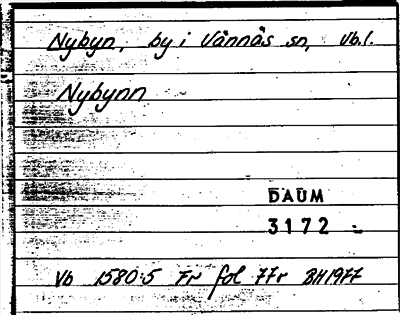 Nybyn, by i Vännäs sn, Vb.l.
Nybynn
DAUM
3172
Vb 1580:5 Fr fol 77r BH1977